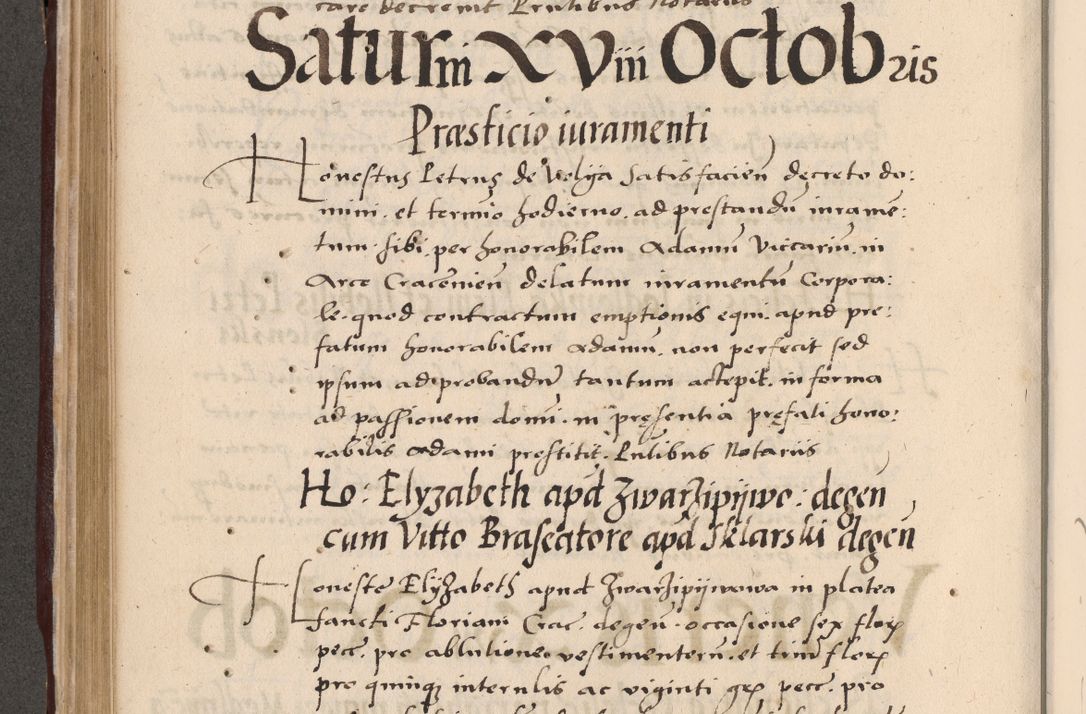 care decrevit Pntibus Notariis
Saturni XViii Octobris
Præsticio iuramenti
Honestus Petrus de Wolya satisfacieñ decreto do:
mini. et termio hodierno. ad prestandũ iurame:
tum. sibi. per honorabilem Adamũ Viccariũ. in
Arce Cracovieñ delatum iuramentũ Corpora:
le. quod contractum emptionis equi. apud pre:
fatum honorabilem Adamũ. non perfecit sed
ipsum ad probandũ tantum accepit. in forma
ad passionem domi. in pręsentia pręfati hono:
rabilis Adami prestitit. Pntibus Notariis
Ho: Elyzabeth apd Zwarzipijwo: degeñ
cum Vitto Braseatore apd Sklarski degeñ
Honeste Elyzabeth apud Zwarzipijwowa in platea
sancti Floriani Crac. degeñ. occasione sex flor
pecc. pro ablutione vestimentorũ. et triũ flor
pro quinque internlis ac viginti gr pecc. pro